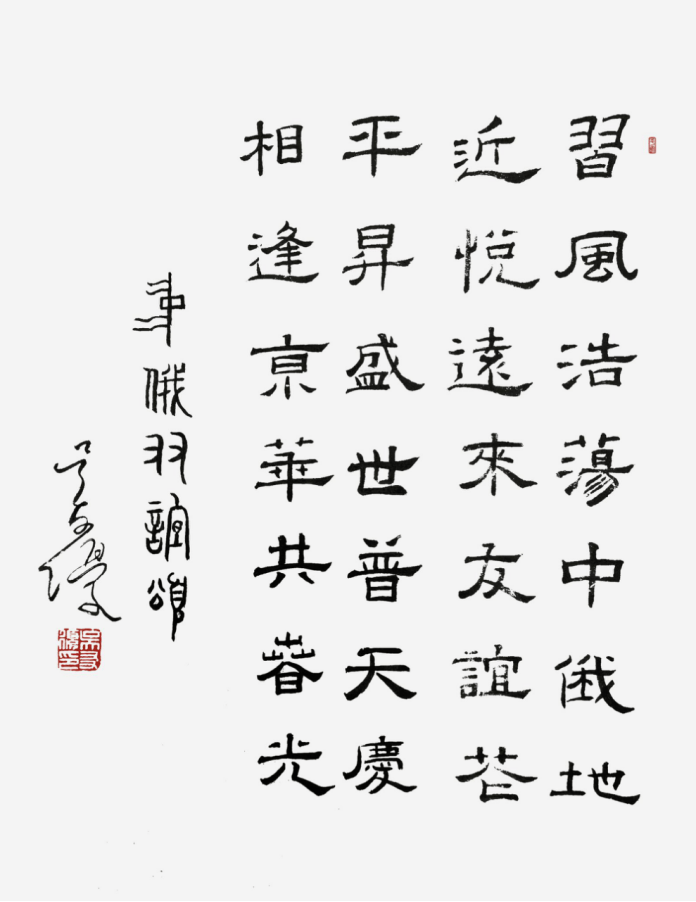 習風浩蕩中俄地
近悅遠來友誼花
平昇盛世普天慶
相逢京華共春光
中俄友誼頌